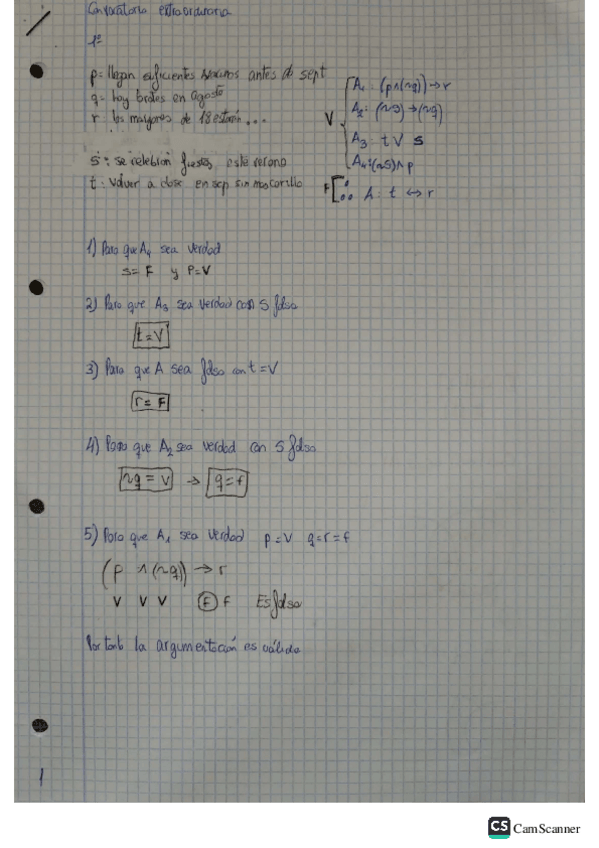 Convocatoria extraordinaria
1º
p = llegan suficientes antes de sept
q = hay brotes en agosto
r = los mayores de 18 estarán ...
s = se celebran fiestas este verano
t = volver a clase en sep sin mascarilla
V
A₁ : (p∧(~q)) → r
A₂ : (~s) → (~q)
A₃ : t V s
A₄ : (~s) ∧ p
F ∴ A : t ↔ r
1) Para que A₄ sea verdad
s = F y p = V
2) Para que A₃ sea verdad con s falso
t = V
3) Para que A sea falso con t = V
r = F
4) Para que A₂ sea verdad con s falso
~q = V → q = f
5) Para que A₁ sea verdad p = V q = r = f
(p ∧ (~q)) → r
V V V F f Es falso
Por tanto la argumentación es válida
1
CS CamScanner